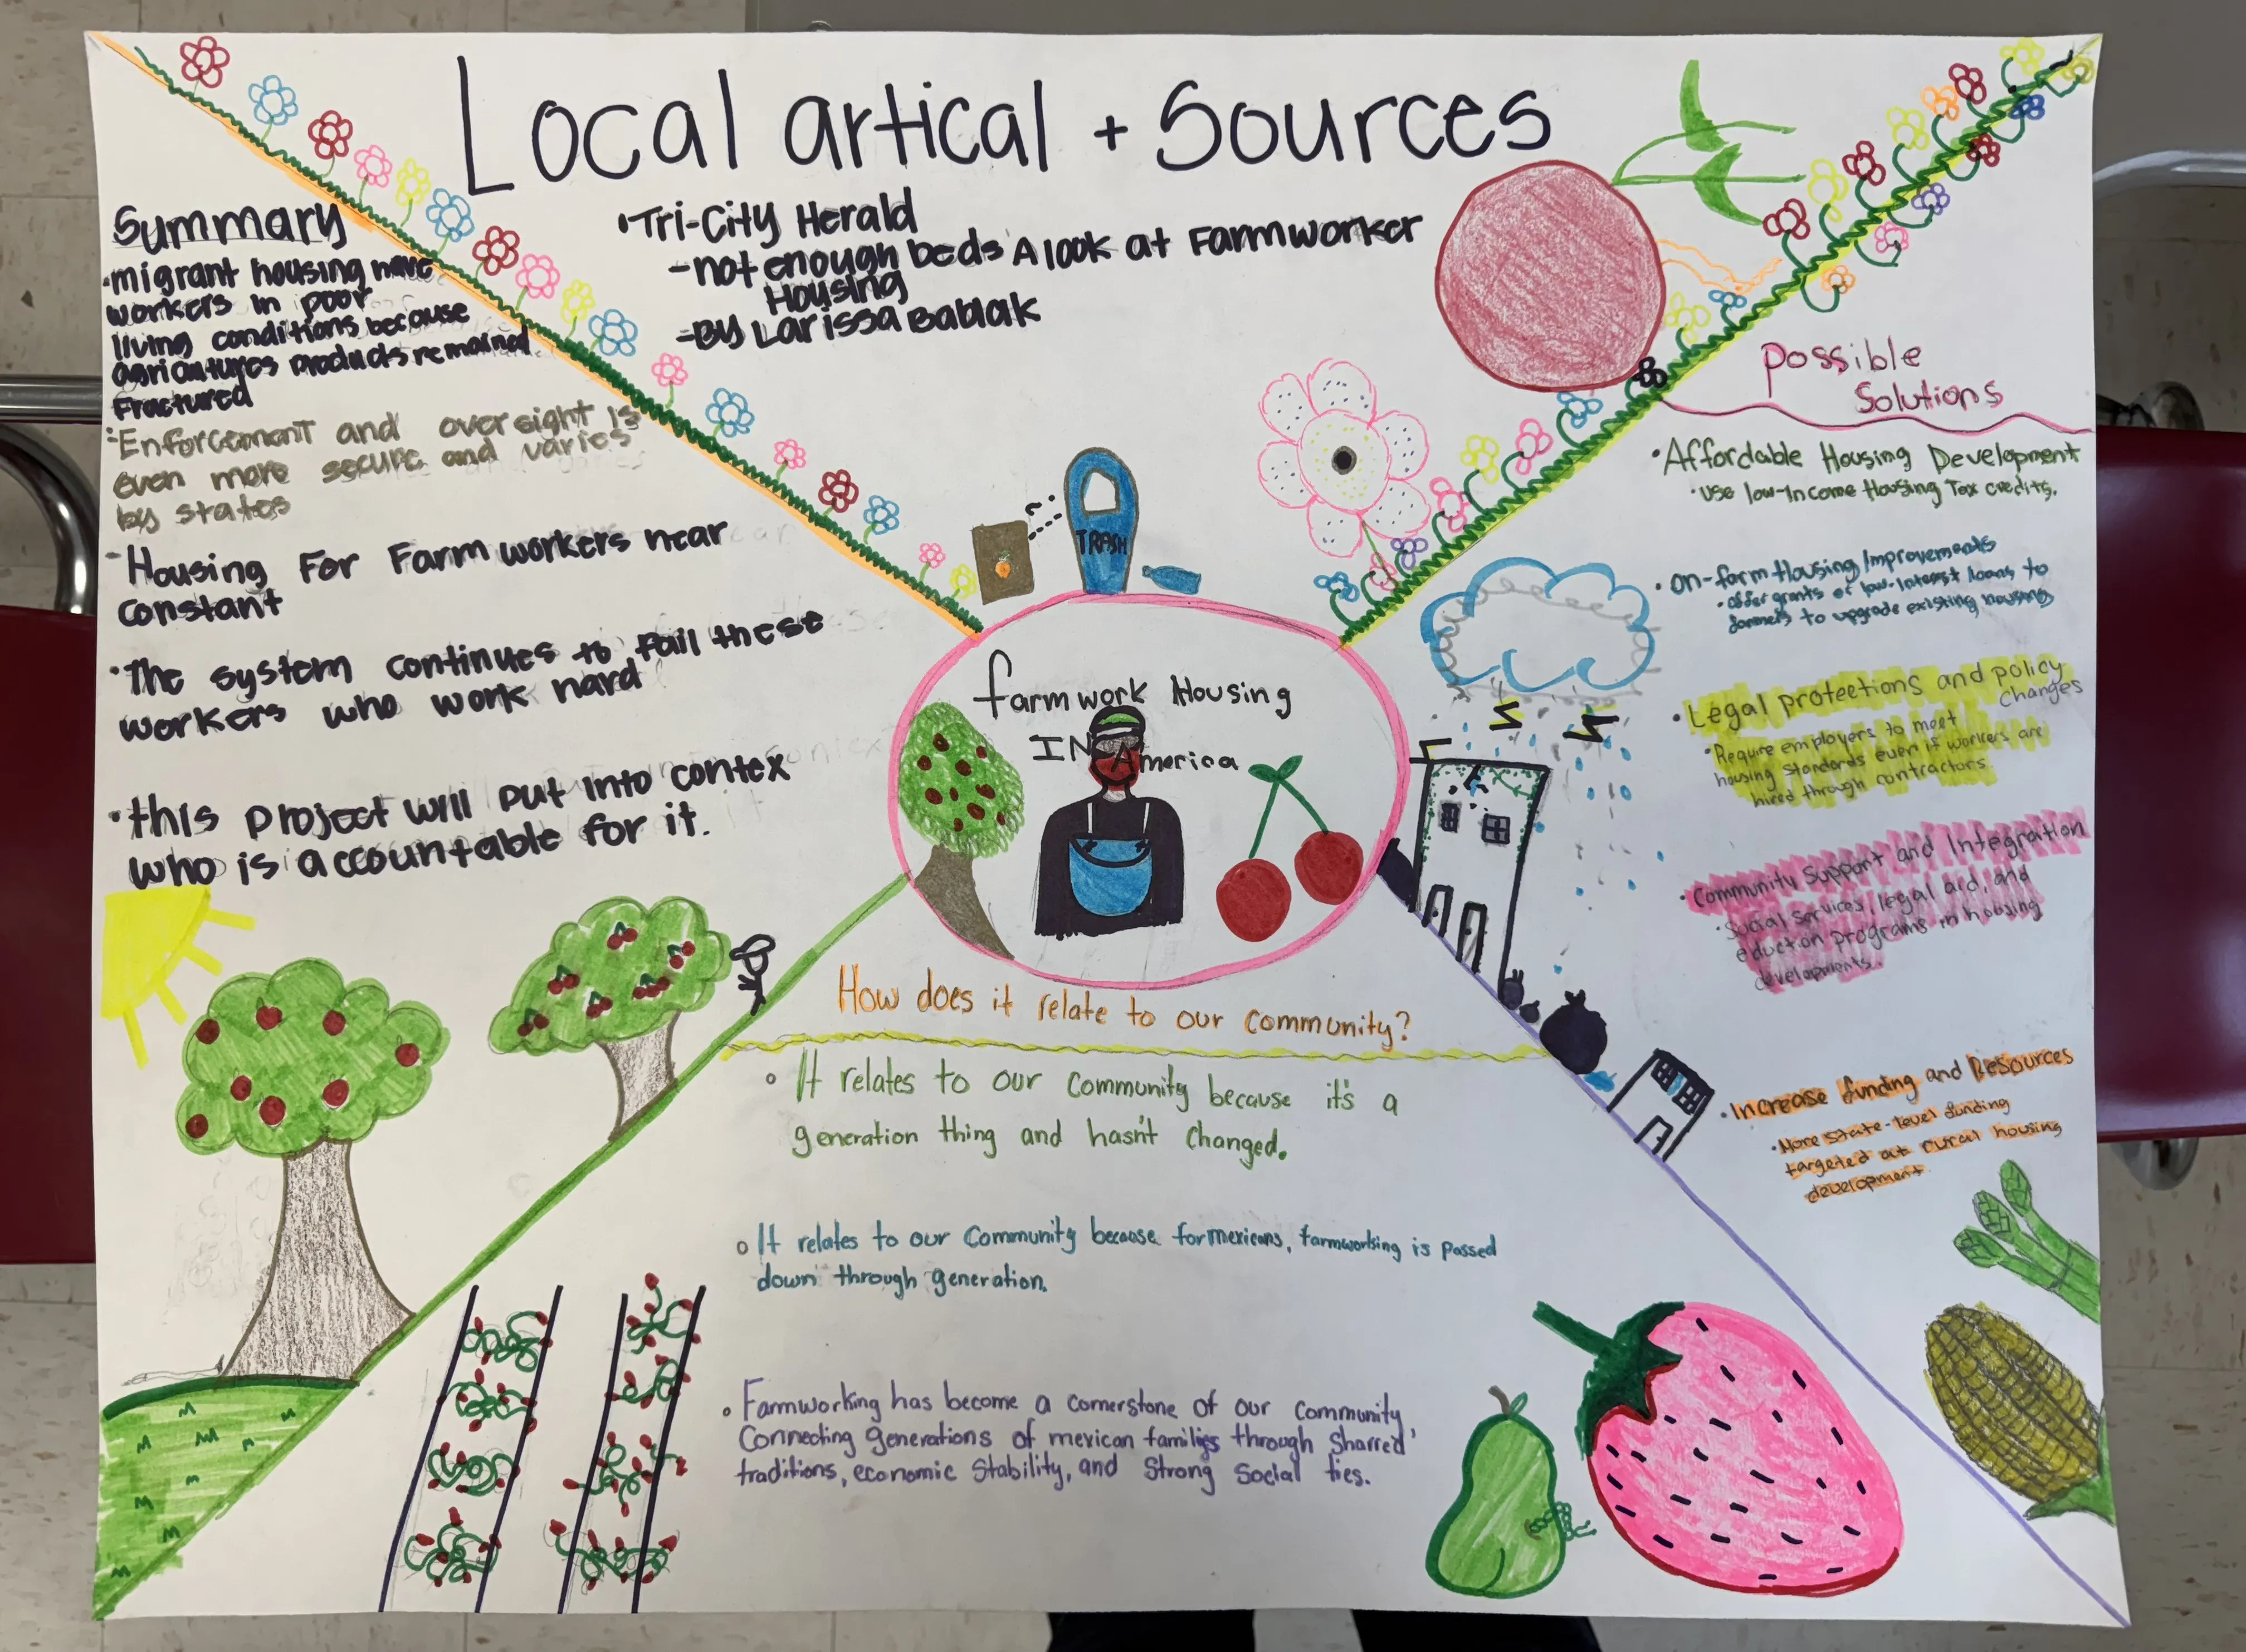 Local artical + Sources
• Tri-City Herald
- not enough beds A look at Farmworker
Housing
- By Larissa Babiak
Summary
• migrant housing have
workers in poor
living conditions because
products remained
Fractured
• Enforcement and oversight is
even more secure and varies
by states
- Housing For Farm workers near
constant
• The system continues to fail these
workers who work hard
• this project will put into contex
who is accountable for it.
TRASH
farmwork Housing
IN America
Possible
Solutions
• Affordable Housing Development
• use low-Income Housing Tax credits.
• on-farm Housing Improvements
• offer grants or low-interest loans to
farmers to upgrade existing housing
• Legal protections and policy
changes
• Require employers to meet
housing standards even if workers are
hired through contractors
• Community Support and Integration
• Social services, legal aid, and
eduction programs in housing
developments.
• Increase funding and Resources
• More state-level funding
targeted at rural housing
development
How does it relate to our community?
◦ It relates to our community because it's a
generation thing and hasn't changed.
◦ It relates to our community because for mexicans, farmworking is passed
down through generation.
◦ Farmworking has become a cornerstone of our community
Connecting generations of mexican families through Sharred
traditions, economic stability, and strong social ties.